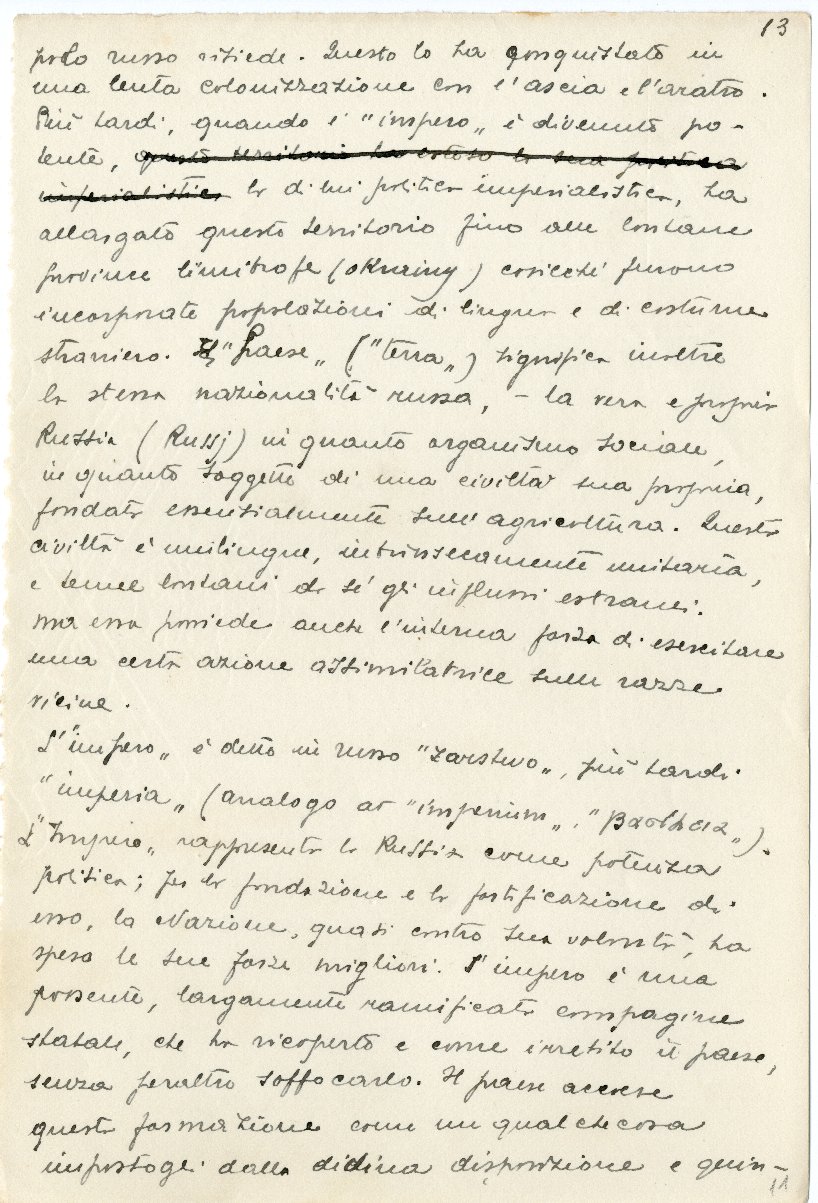 13
polo russo risiede. Questo lo ha conquistato in
una lenta colonizzazione con l'ascia e l'aratro.
Più tardi, quando l'"impero" è divenuto po-
tente, questo territorio ha esteso la sua politica
imperialistica la di lui politica imperialistica, ha
allargato questo territorio fino alle lontane
province limitrofe (okrainy) cosicché furono
incorporate popolazioni di lingua e di costume
straniero. Il "Paese" ("terra") significa inoltre
la stessa nazionalità russa, – la vera e propria
Russia (Russj) in quanto organismo sociale,
in quanto soggetto di una civiltà sua propria,
fondata essenzialmente sull'agricoltura. Questa
civiltà è unilingue, intrinsecamente unitaria,
e tenne lontani da sé gli influssi estranei.
ma essa possiede anche l'interna forza di esercitare
una certa azione assimilatrice sulle razze
vicine.
L'"impero" è detto in russo "zarstwo", più tardi
"imperia" (analogo ad "imperium",
L'"Impero" rappresenta la Russia come potenza
politica; per la fondazione e la fortificazione di
esso, la Nazione, quasi contro sua volontà, ha
speso le sue forze migliori. L'impero è una
possente, largamente ramificata compagine
statale, che ha ricoperto e come irretito il paese,
senza peraltro soffocarlo. Il paese accolse
questa formazione come un qualchecosa
impostogli dalla divina disposizione e quin-
11